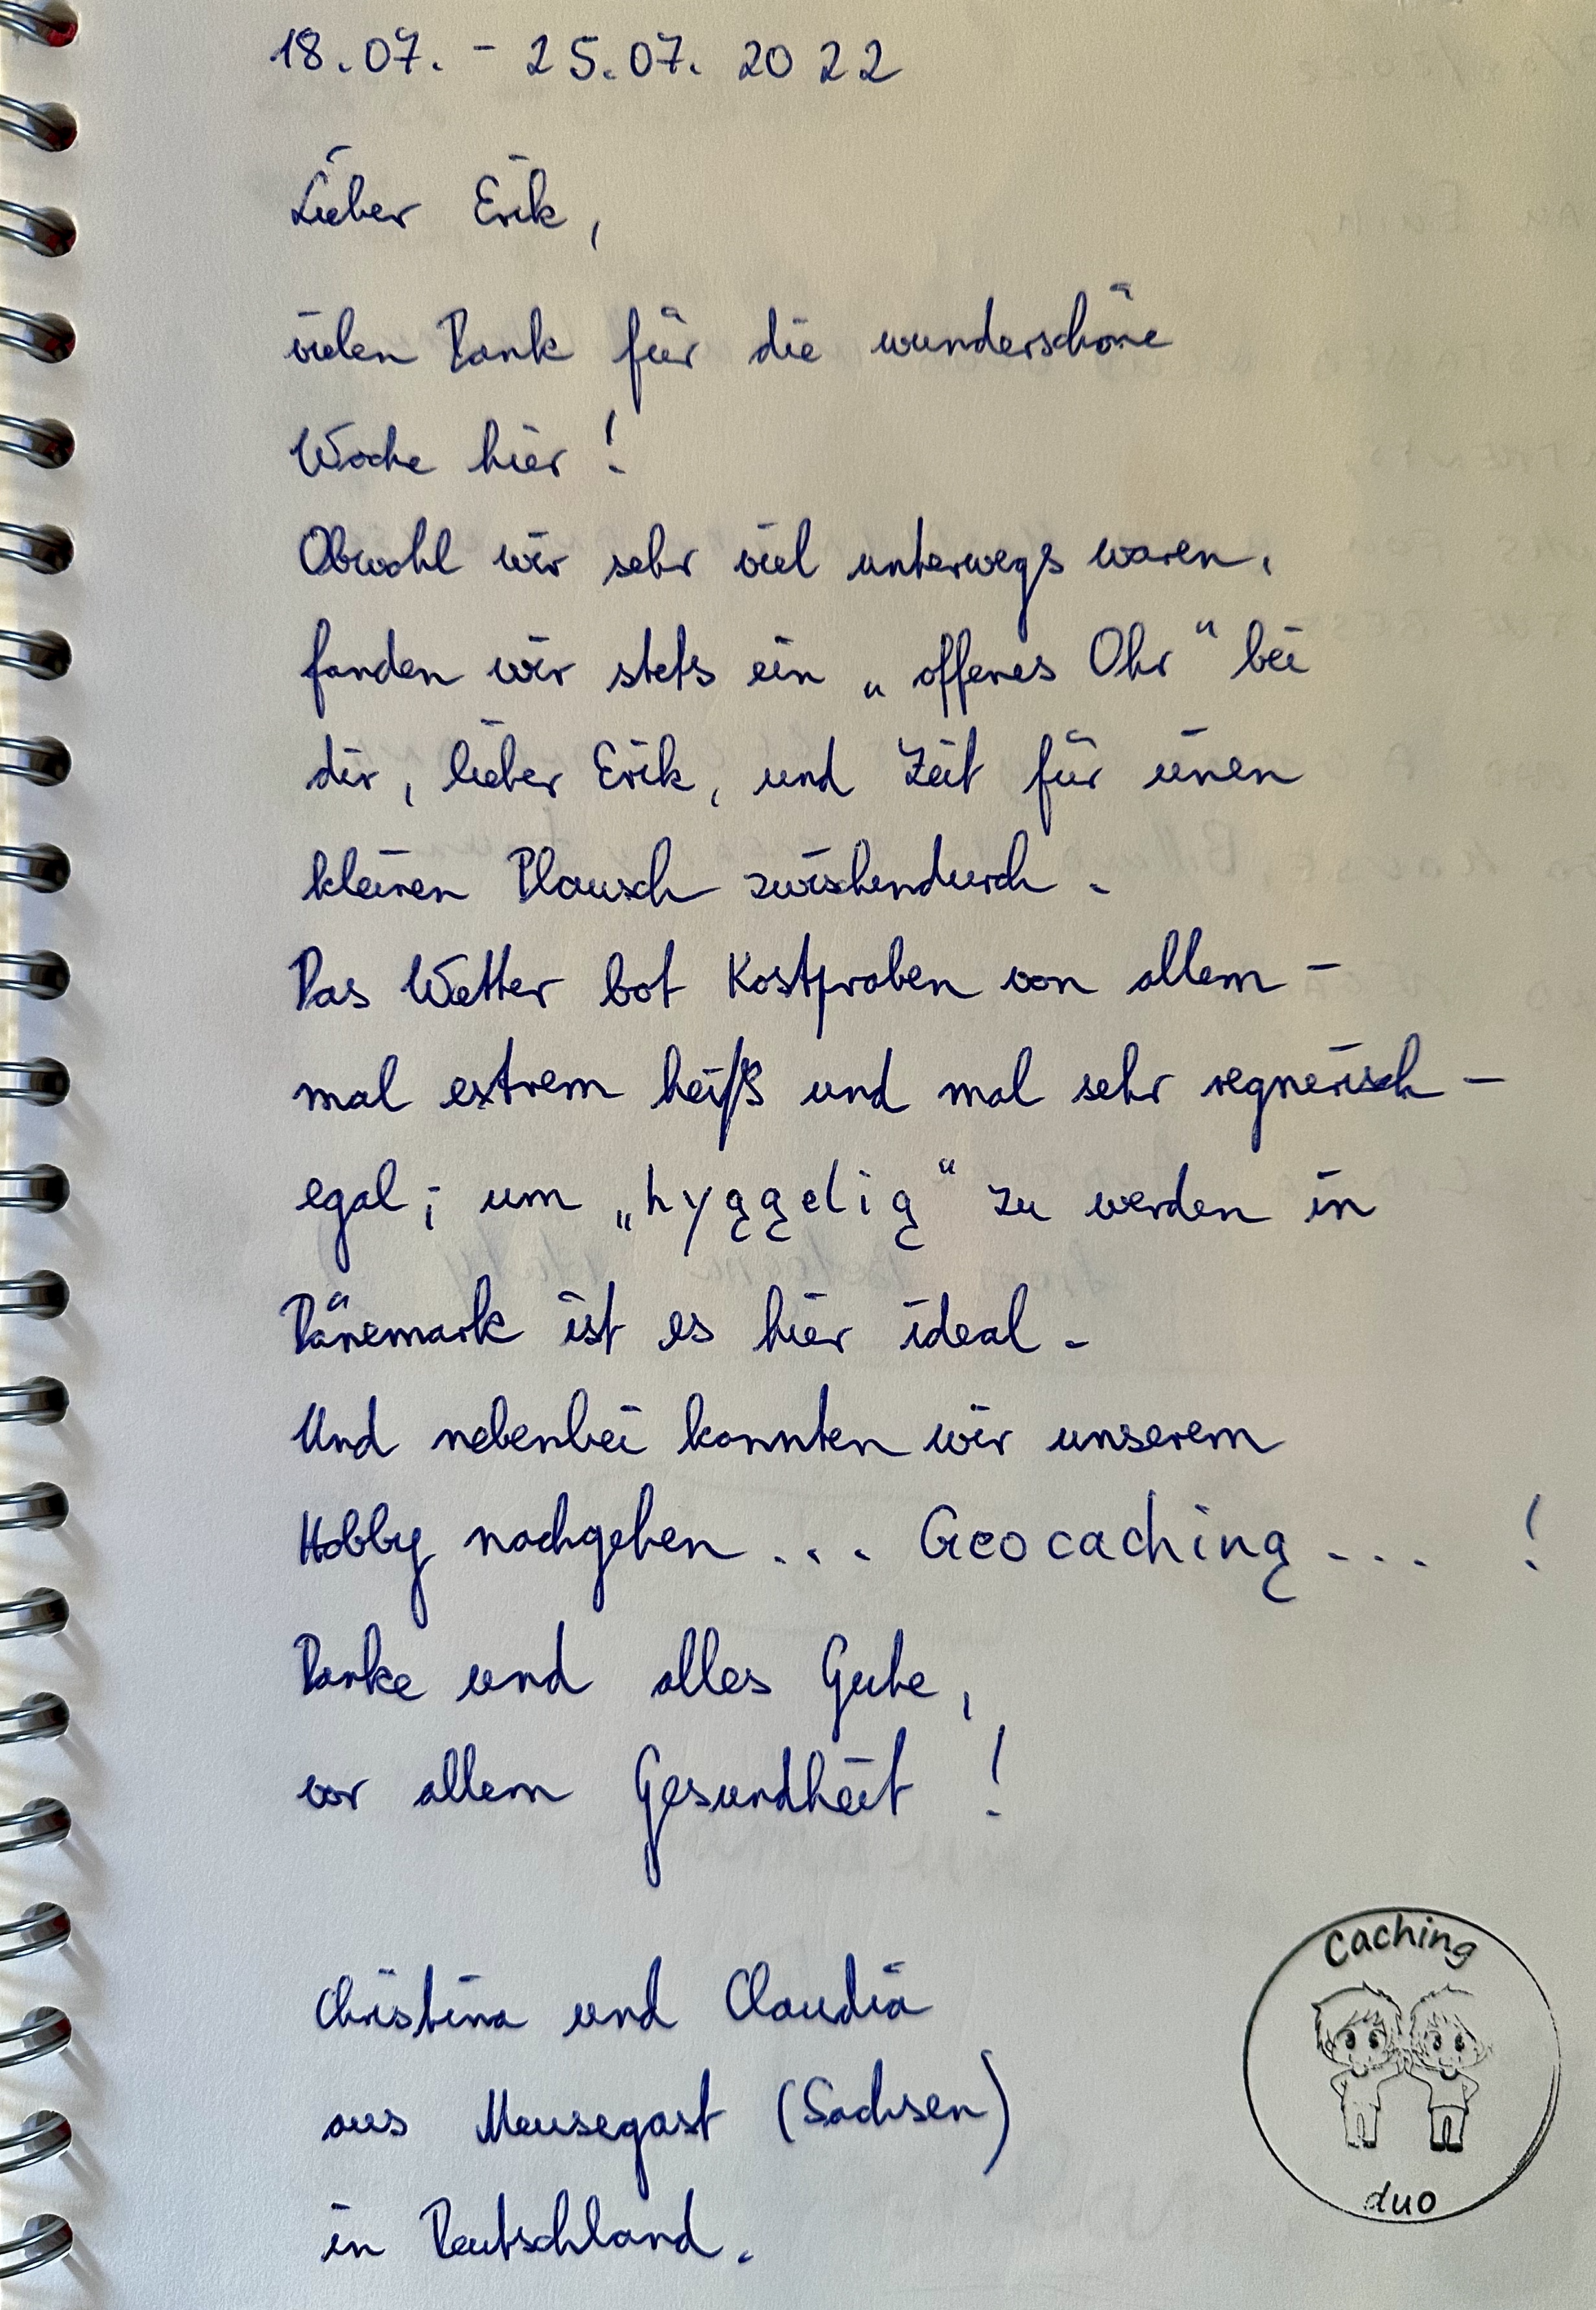 18.07. - 25.07. 2022
Lieber Erik,
vielen Dank für die wunderschöne
Woche hier!
Obwohl wir sehr viel unterwegs waren,
fanden wir stets ein „offenes Ohr“ bei
dir, lieber Erik, und Zeit für einen
kleinen Plausch zwischendurch.
Das Wetter bot Kostproben von allem -
mal extrem heiß und mal sehr regnerisch -
egal; um „hyggelig“ zu werden in
Dänemark ist es hier ideal.
Und nebenbei konnten wir unserem
Hobby nachgehen ... Geocaching ... !
Danke und alles Gute,
vor allem Gesundheit !
Christina und Claudia
aus Meusegast (Sachsen)
in Deutschland.
Caching
duo